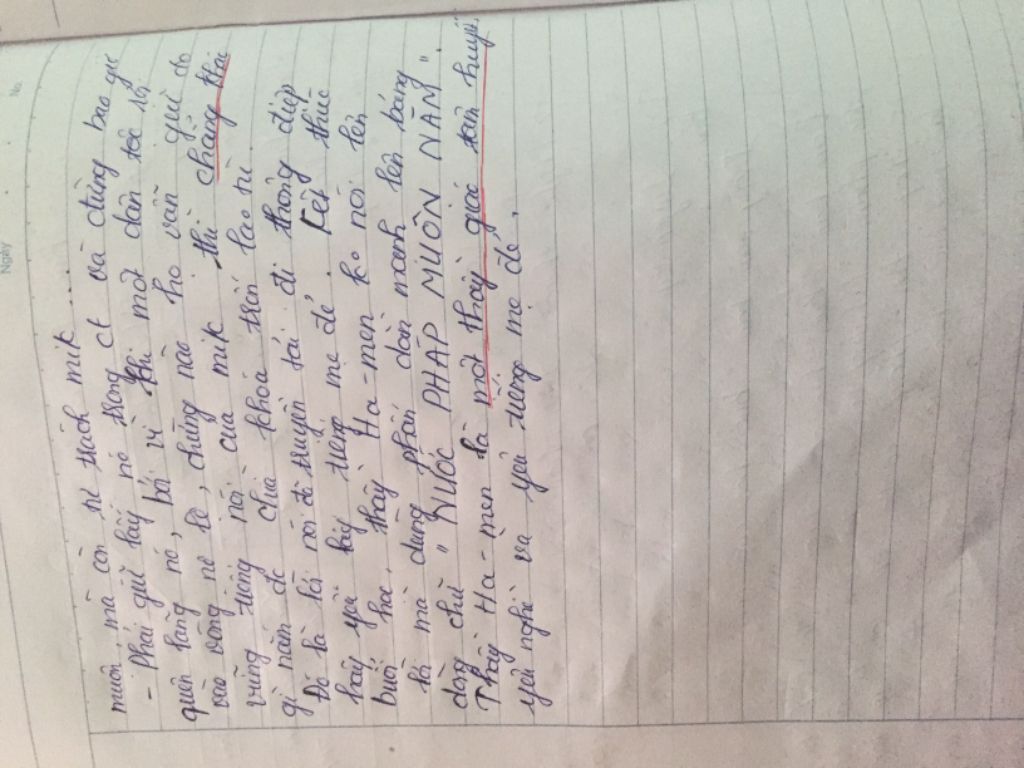 muộn mà còn tự trách mik....
- Phải giữ lấy nó trong ct và đừng bao giờ
quên lãng nó, bởi vì khi một dân tộc rơi
vào vòng nô lệ, chừng nào họ vẫn giữ đc
vững tiếng nói của mik thì chẳng khác
gì nắm đc chìa khoá chốn lao tù.
Đó là lời nói đã truyền tải đi thông điệp
hãy yêu lấy tiếng mẹ đẻ. Kết thúc
buổi học, thầy Ha-men ko nói lên
lời mà dùng phấn dằn mạnh lên bảng
dòng chữ " NƯỚC PHÁP MUÔN NĂM".
Thầy Ha-men là một thầy giáo tâm huyết
yêu nghề và yêu tiếng mẹ đẻ.
Ngày
No